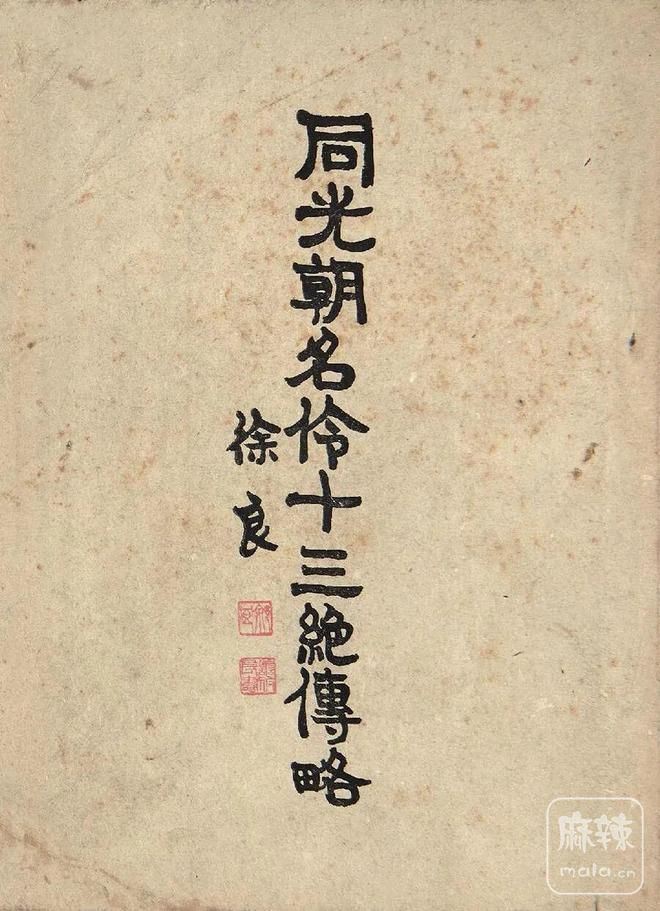 同光朝名伶十三絶傳略
徐良
麻辣
mala.cn